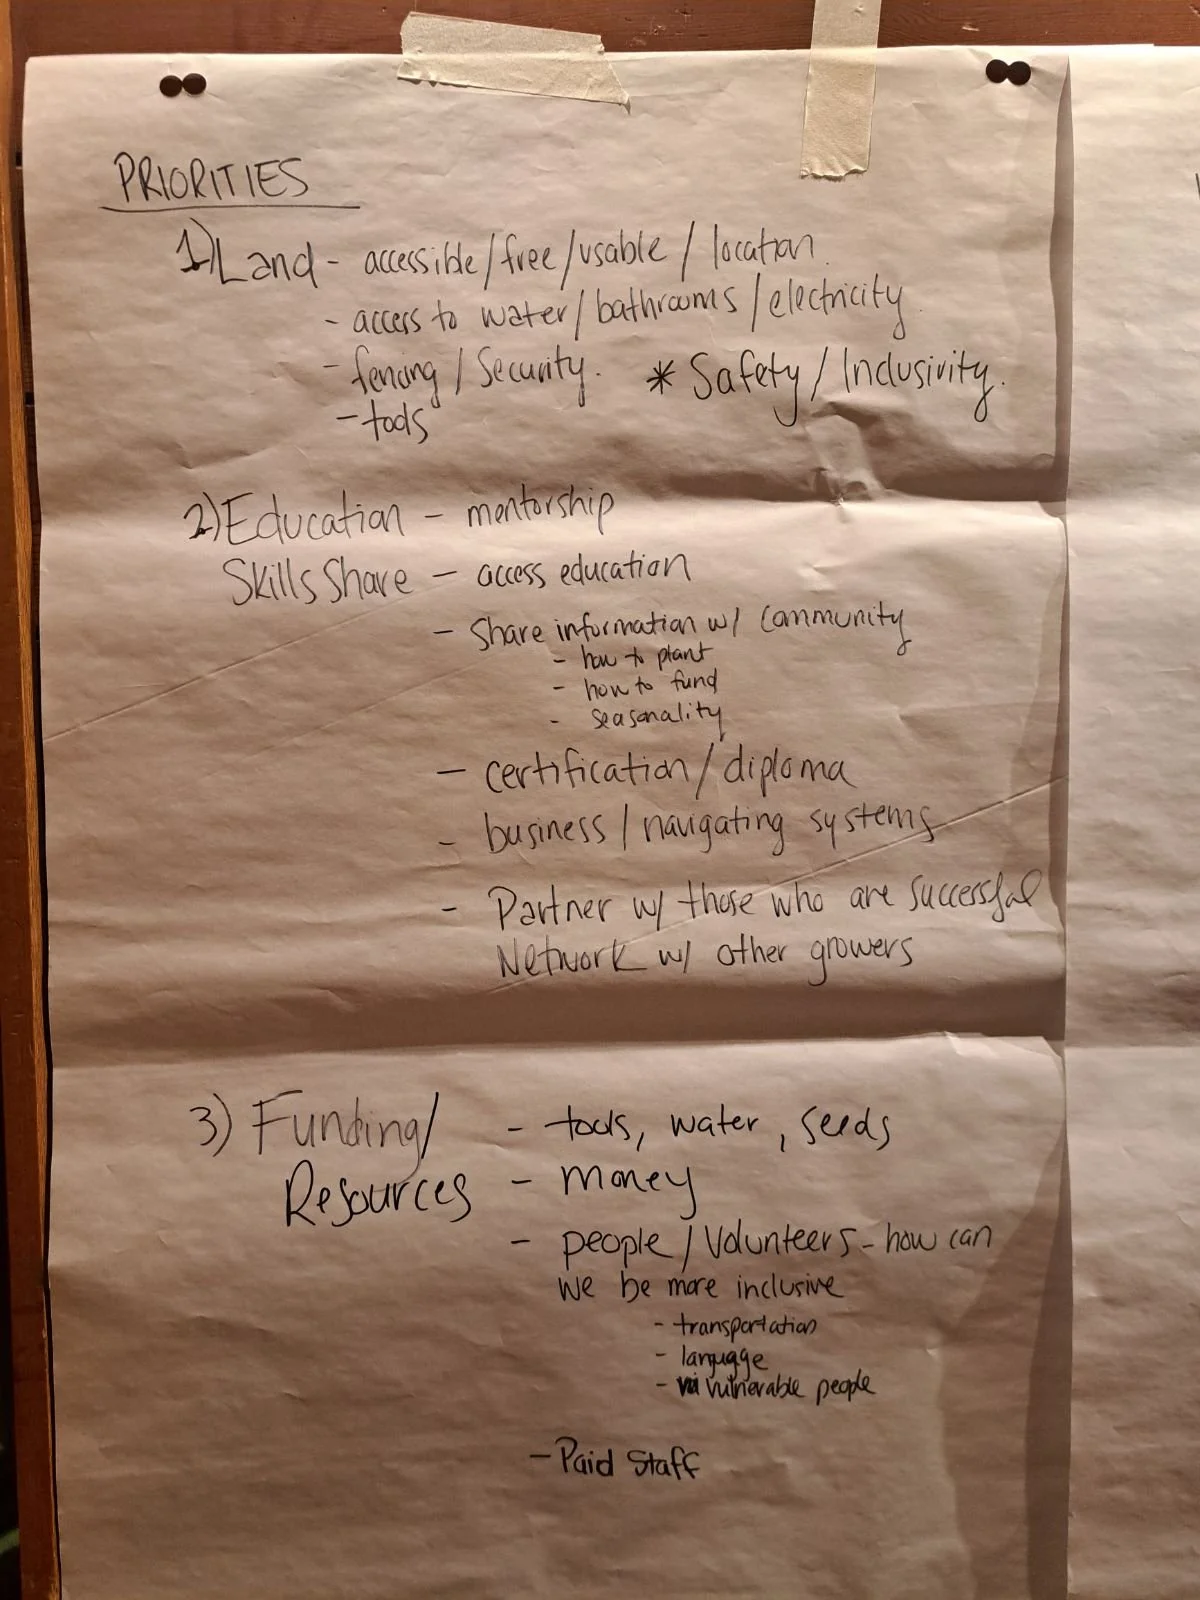 PRIORITIES
1) Land - accessible/free/usable/location.
- access to water/bathrooms/electricity.
- fencing/Security. * Safety/Inclusivity.
- tools
2) Education - mentorship
Skills Share - access education
- Share information w/ community
- how to plant
- how to fund
- seasonality
- certification/diploma
- business/navigating systems
- Partner w/ those who are successful
Network w/ other growers
3) Funding/ - tools, water, seeds
Resources - money
- people/Volunteers - how can
we be more inclusive
- transportation
- language
- vulnerable people
- Paid Staff